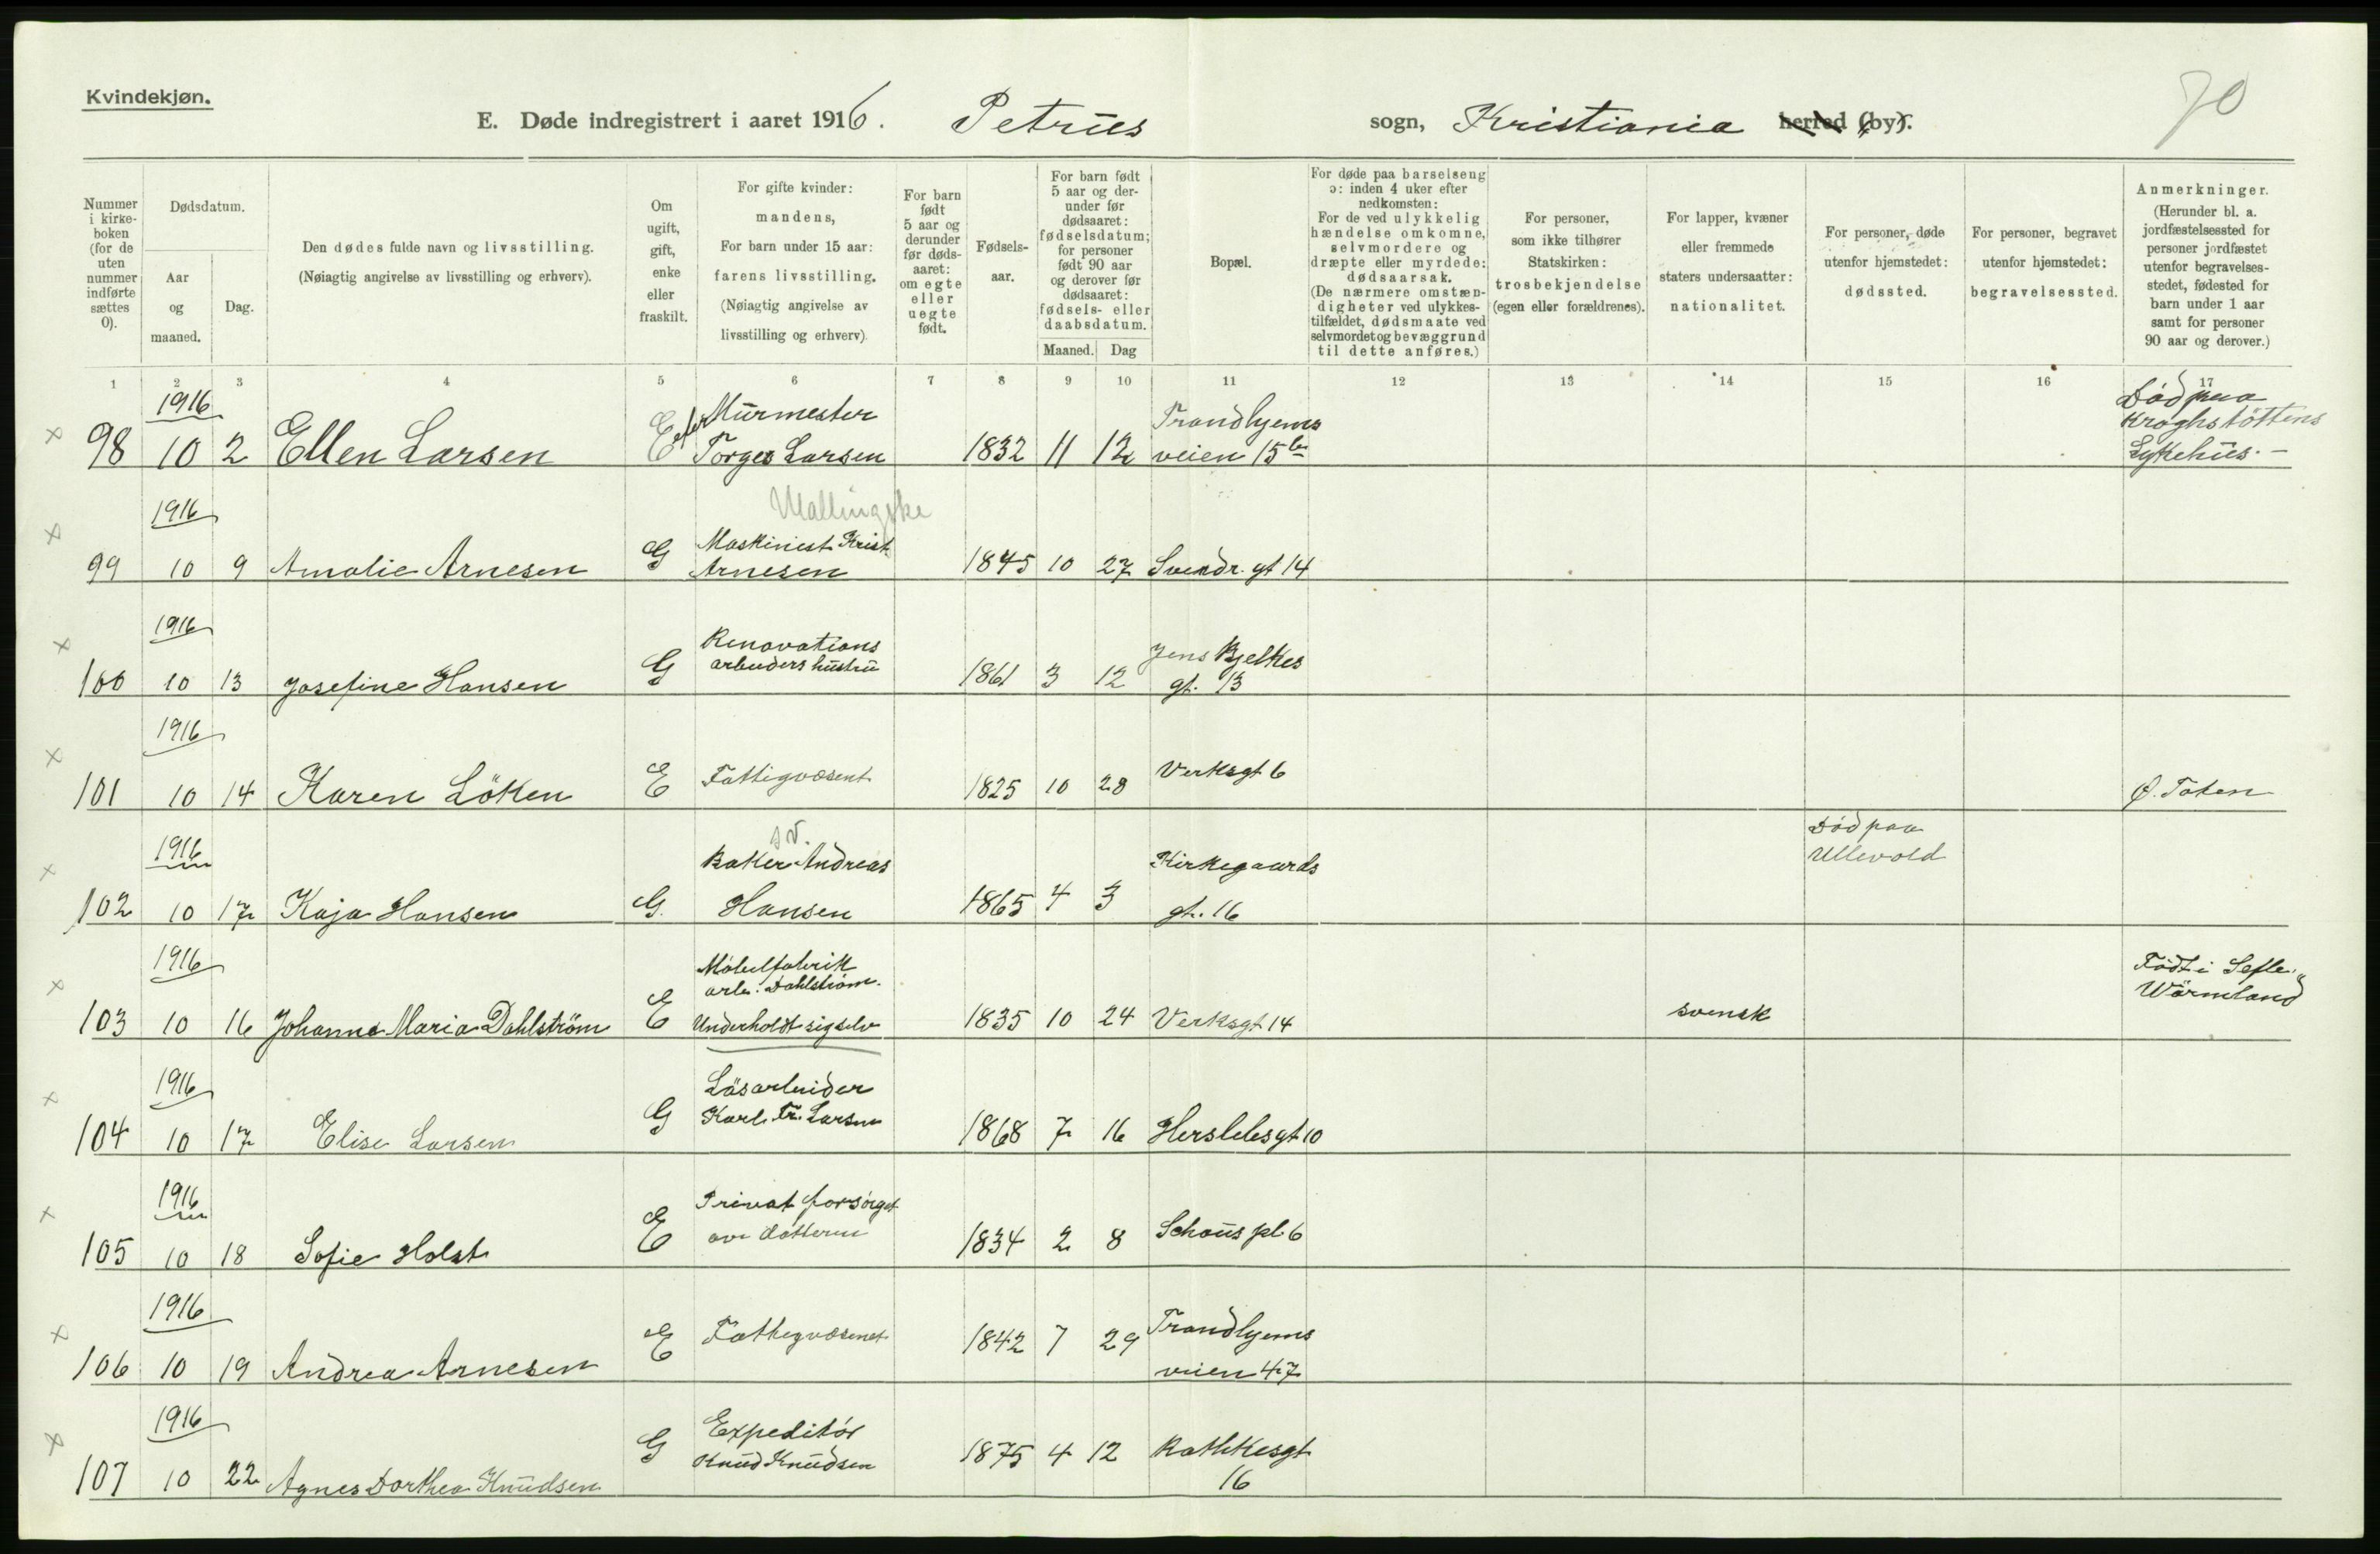 Kvindekjøn.
70
E. Døde indregistrert i aaret 1916. Petrus sogn, Kristiania herred (by).
Nummer i kirke-boken (for de uten nummer indførte sættes 0).
Dødsdatum.
Aar og maaned.
Dag.
Den dødes fulde navn og livsstilling.
(Nøiagtig angivelse av livsstilling og erhverv).
Om ugift, gift, enke eller fraskilt.
For gifte kvinder: mandens, For barn under 15 aar: farens livsstilling. (Nøiagtig angivelse av livsstilling og erhverv)
For barn født 5 aar og derunder før døds-aaret: om egte eller uegte født.
Fødsels-aar.
For barn født 5 aar og der-under før dødsaaret: fødselsdatum; for personer født 90 aar og derover før dødsaaret: fødsels- eller daabsdatum.
Maaned. Dag
Bopæl.
For døde paa barselseng ɔ: inden 4 uker efter nedkomsten: For de ved ulykkelig hændelse omkomne, selvmordere og dræpte eller myrdede: dødsaarsak. (De nærmere omstæn-digheter ved ulykkes-tilfældet, dødsmaate ved selvmordet og bevæggrund til dette anføres.)
For personer, som ikke tilhører Statskirken: trosbekjendelse (egen eller forældrenes).
For lapper, kvæner eller fremmede staters undersaatter: nationalitet.
For personer, døde utenfor hjemstedet: dødssted.
For personer, begravet utenfor hjemstedet: begravelsessted.
Anmerkninger. (Herunder bl. a. jordfæstelsessted for personer jordfæstet utenfor begravelses-stedet, fødested for barn under 1 aar samt for personer 90 aar og derover.)
1 2 3 4 5 6 7 8 9 10 11 12 13 14 15 16 17
1916
x 98 10 2 Ellen Larsen E efter Murmester Torger Larsen 1832 11 12 Trondhjems veien 15 b Död paa Kroghstöttens Sykehus. –
1916
x 99 10 9 Amalie Arnesen G Maskinist Krist. Arnesen 1845 10 27 Svendr. gt 14
1916
x 100 10 13 Josefine Hansen G Renovations arbeiders hustru 1861 3 12 Jens Bjelkes gt. 13
1916
x 101 10 14 Karen Löken E Fattigvæsent 1825 10 28 Verksgt 6 Ø. Toten
1916
x 102 10 17 Kaja Hansen G. Baker Andreas Hansen 1865 4 3 Kirkegaards gt. 16 Död paa Ullevold
1916
x 103 10 16 Johanne Maria Dahlström E Möbelfabrik arb. Dahlström. Underholdt sig selv 1835 10 24 Verksgt 14 svensk Födt i Sefle, Wärmland
1916
x 104 10 17 Elise Larsen G Lösarbeider Karl Fr. Larsen 1868 7 16 Herslebsgt 10
1916
x 105 10 18 Sofie Holst E Privat forsörget av datteren 1834 2 8 Schous pl. 6
1916
x 106 10 19 Andrea Arnesen E Fattigvæsenet 1842 7 29 Trondhjems veien 47
1916
x 107 10 22 Agnes Dorthea Knudsen G Expeditör Knud Knudsen 1875 4 12 Rathkesgt 16